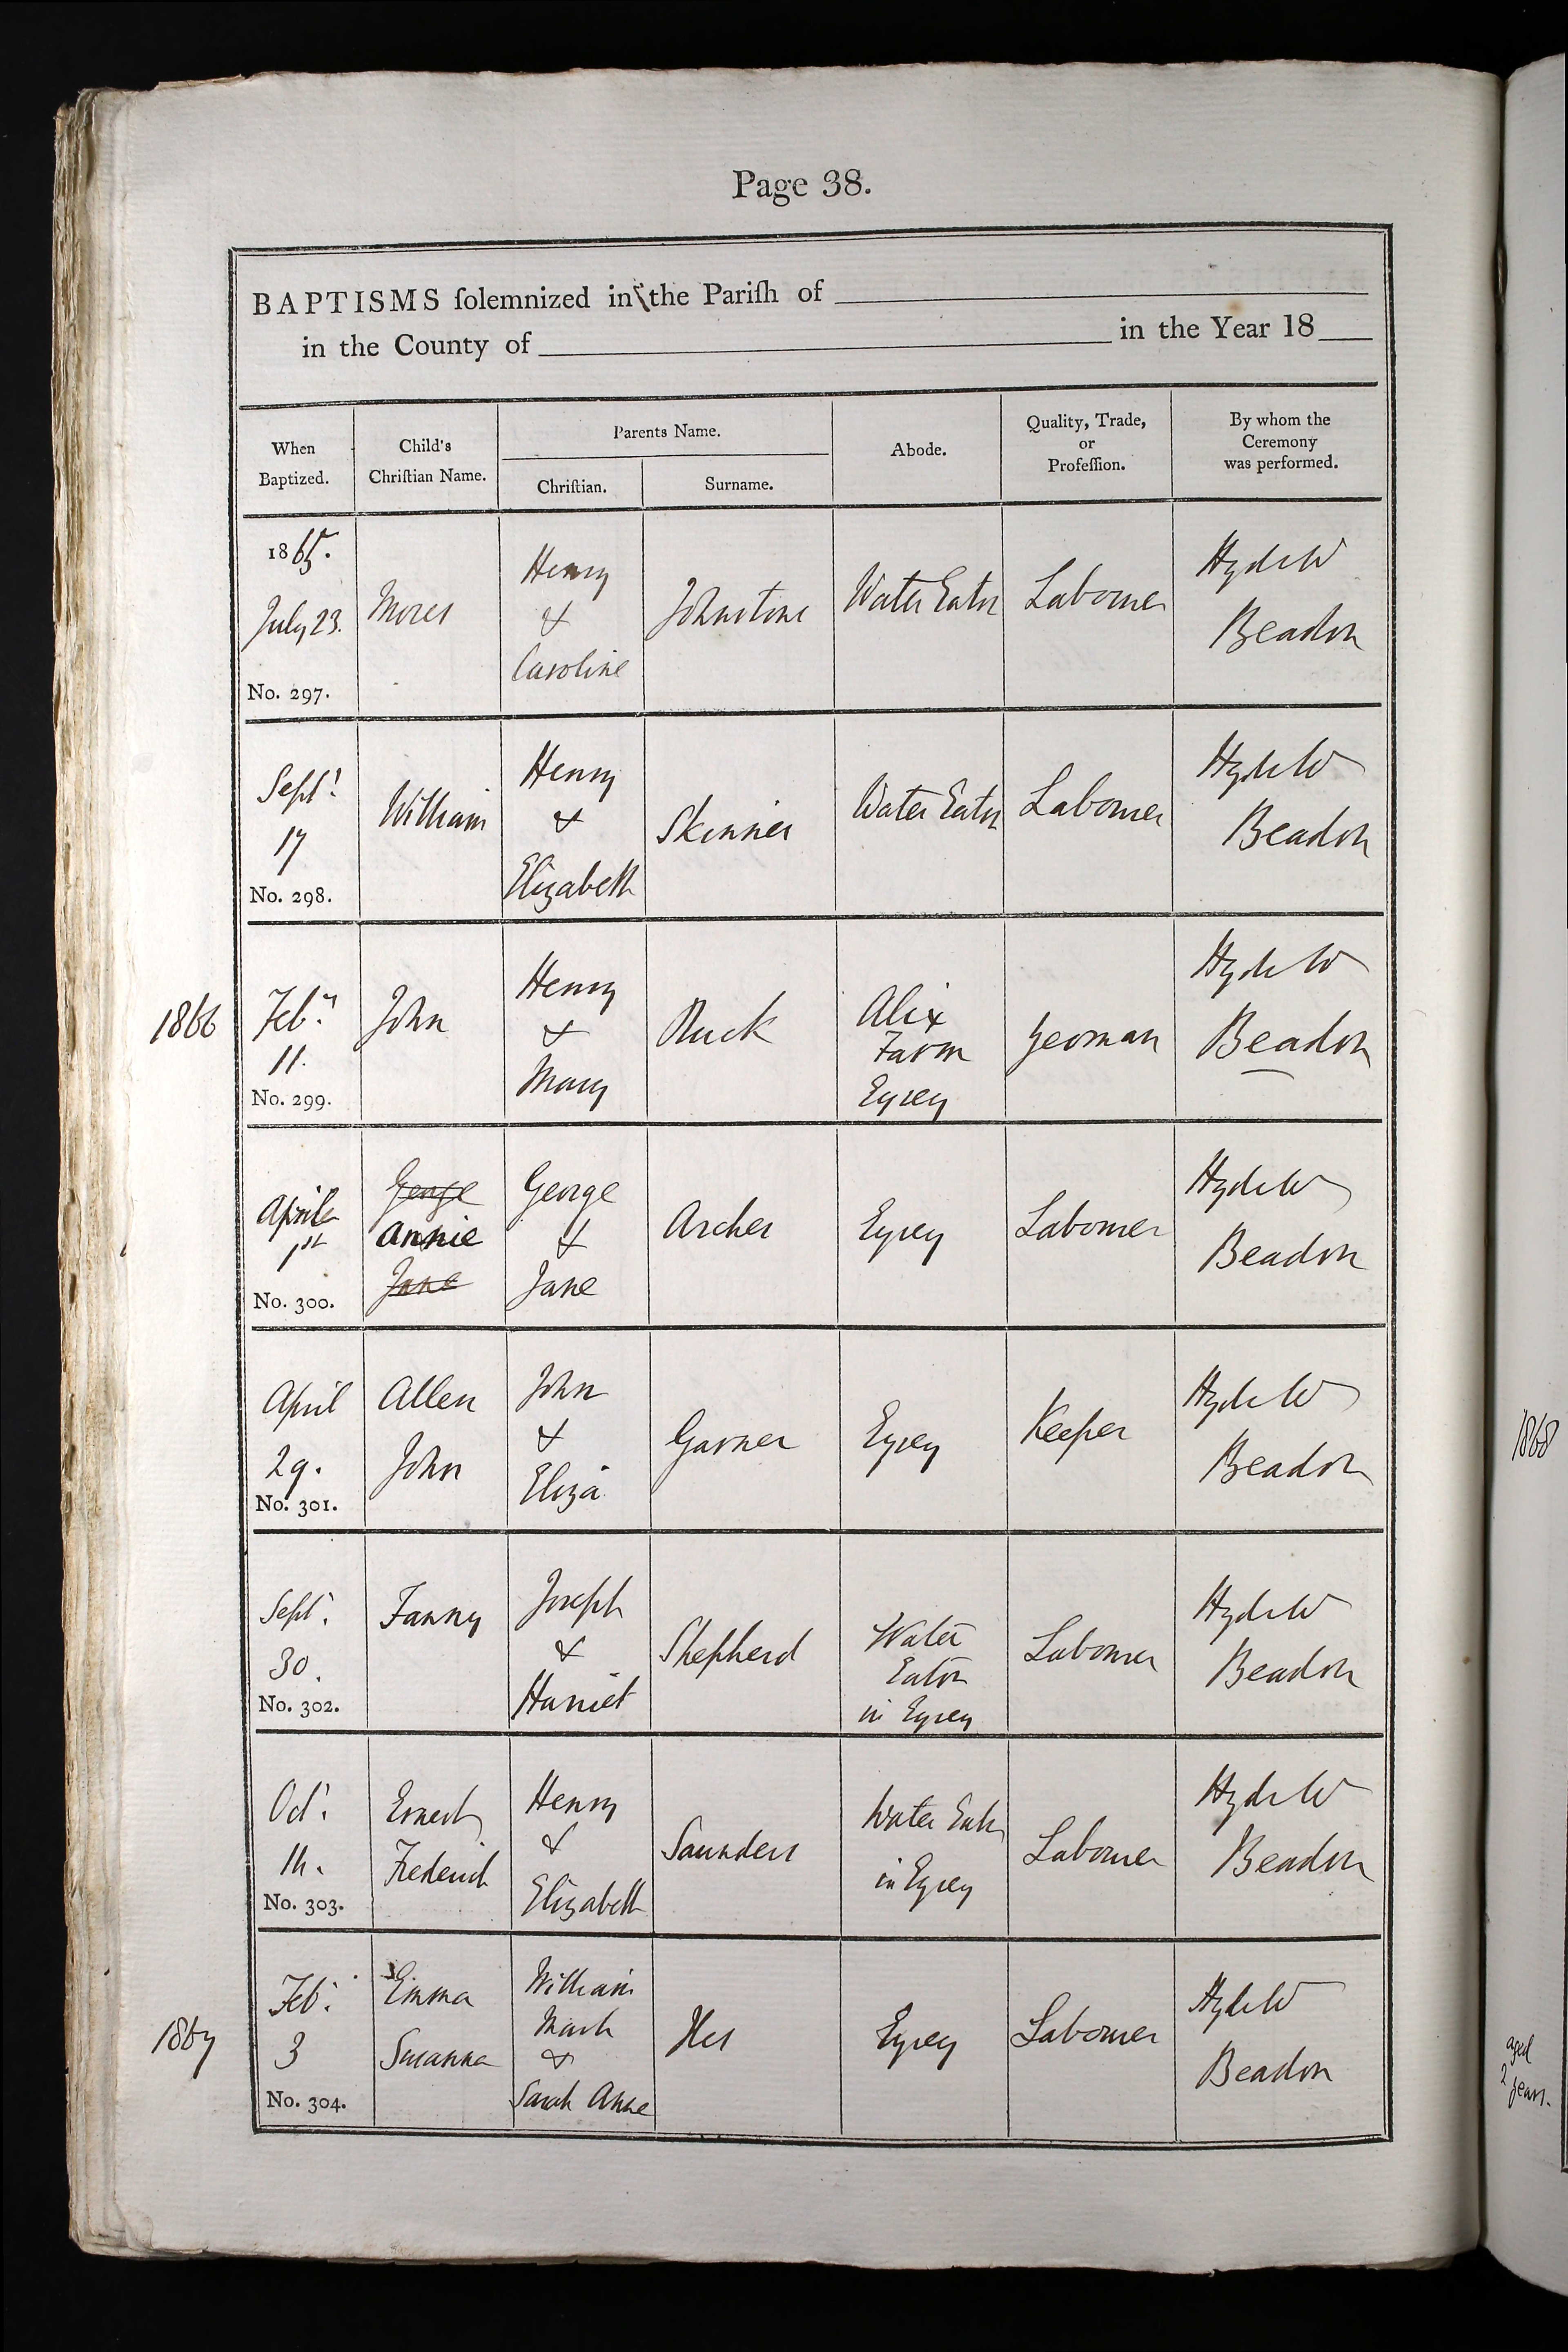 Page 38.
BAPTISMS ſolemnized in the Pariſh of
in the County of in the Year 18
When
Baptized.
Child's
Chriſtian Name.
Parents Name.
Chriſtian.
Surname.
Abode.
Quality, Trade,
or
Profeſſion.
By whom the
Ceremony
was performed.
1865.
July 23.
No. 297.
Moses
Henry
&
Caroline
Johnstone
Water Eaton
Labourer
Hyde W
Beadon
Septr
17
No. 298.
William
Henry
&
Elizabeth
Skinner
Water Eaton
Labourer
Hyde W
Beadon
1866
Feby
11.
No. 299.
John
Henry
&
Mary
Ruck
Alix
Farm
Eysey
Yeoman
Hyde W
Beadon
April
1st
No. 300.
George
Annie
Jane
George
&
Jane
Archer
Eysey
Labourer
Hyde W
Beadon
April
29.
No. 301.
Allen
John
John
&
Eliza
Garner
Eysey
Keeper
Hyde W
Beadon
Septr
30.
No. 302.
Fanny
Joseph
&
Harriet
Shepherd
Water
Eaton
in Eysey
Labourer
Hyde W
Beadon
Octr
14.
No. 303.
Ernest
Frederick
Henry
&
Elizabeth
Saunders
Water Eaton
in Eysey
Labourer
Hyde W
Beadon
1867
Feby
3
No. 304.
Emma
Susanna
William
Mark
&
Sarah Anne
Iles
Eysey
Labourer
Hyde W
Beadon
1868
aged
2
years.